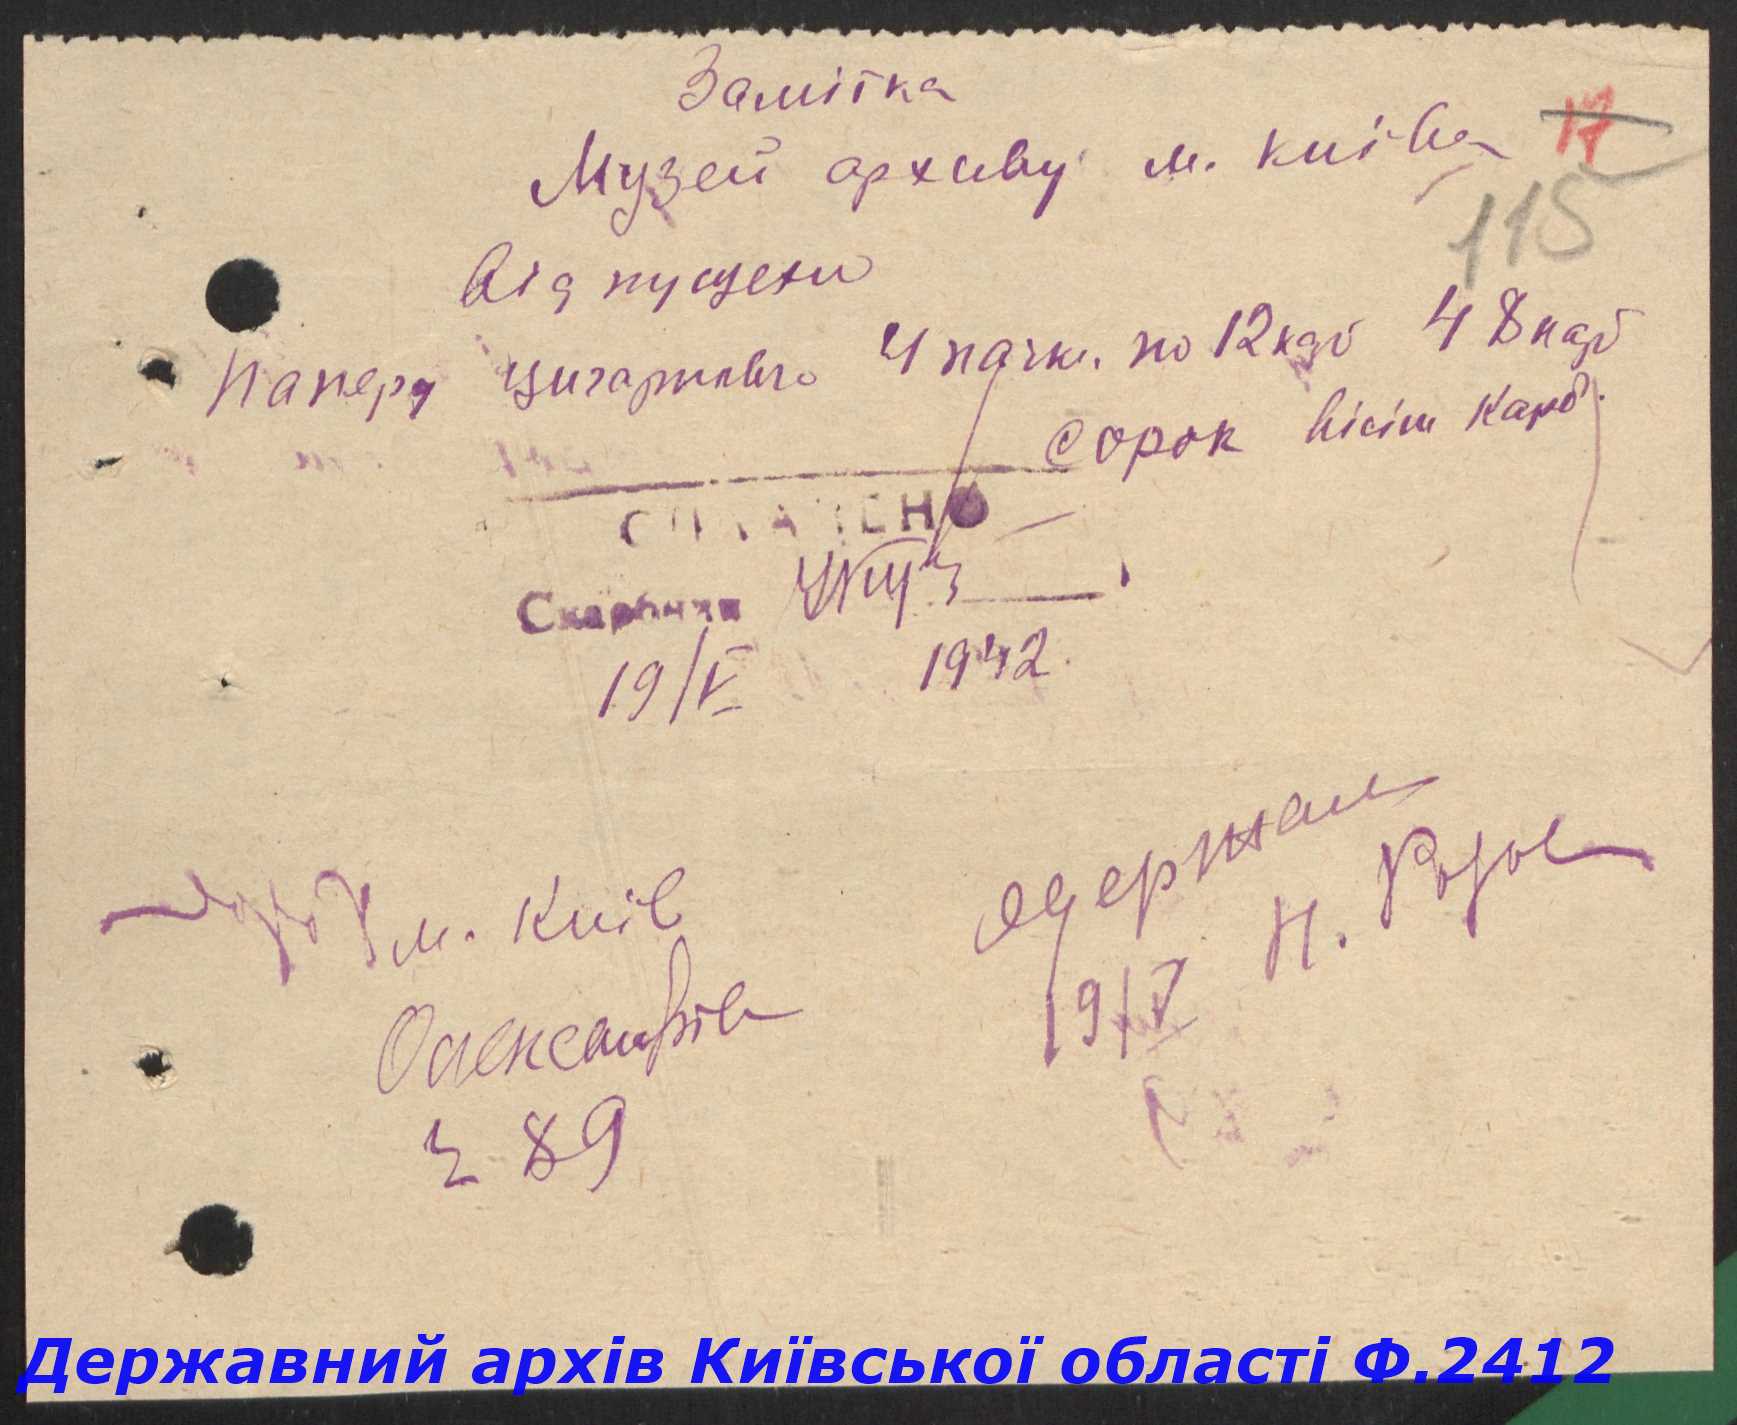 Замітка
Музей архиву м. Київа
17
115
Відпущени
Паперу цигаркового 4 пачк. по 12 карб 48 карб
Сорок вісім карб.
СПЛАЧЕНО
Скарбник
19/V 1942.
Одержал
м. Київ
Н. Розов
19/V
Олександрів
89
Державний архів Київської області Ф.2412